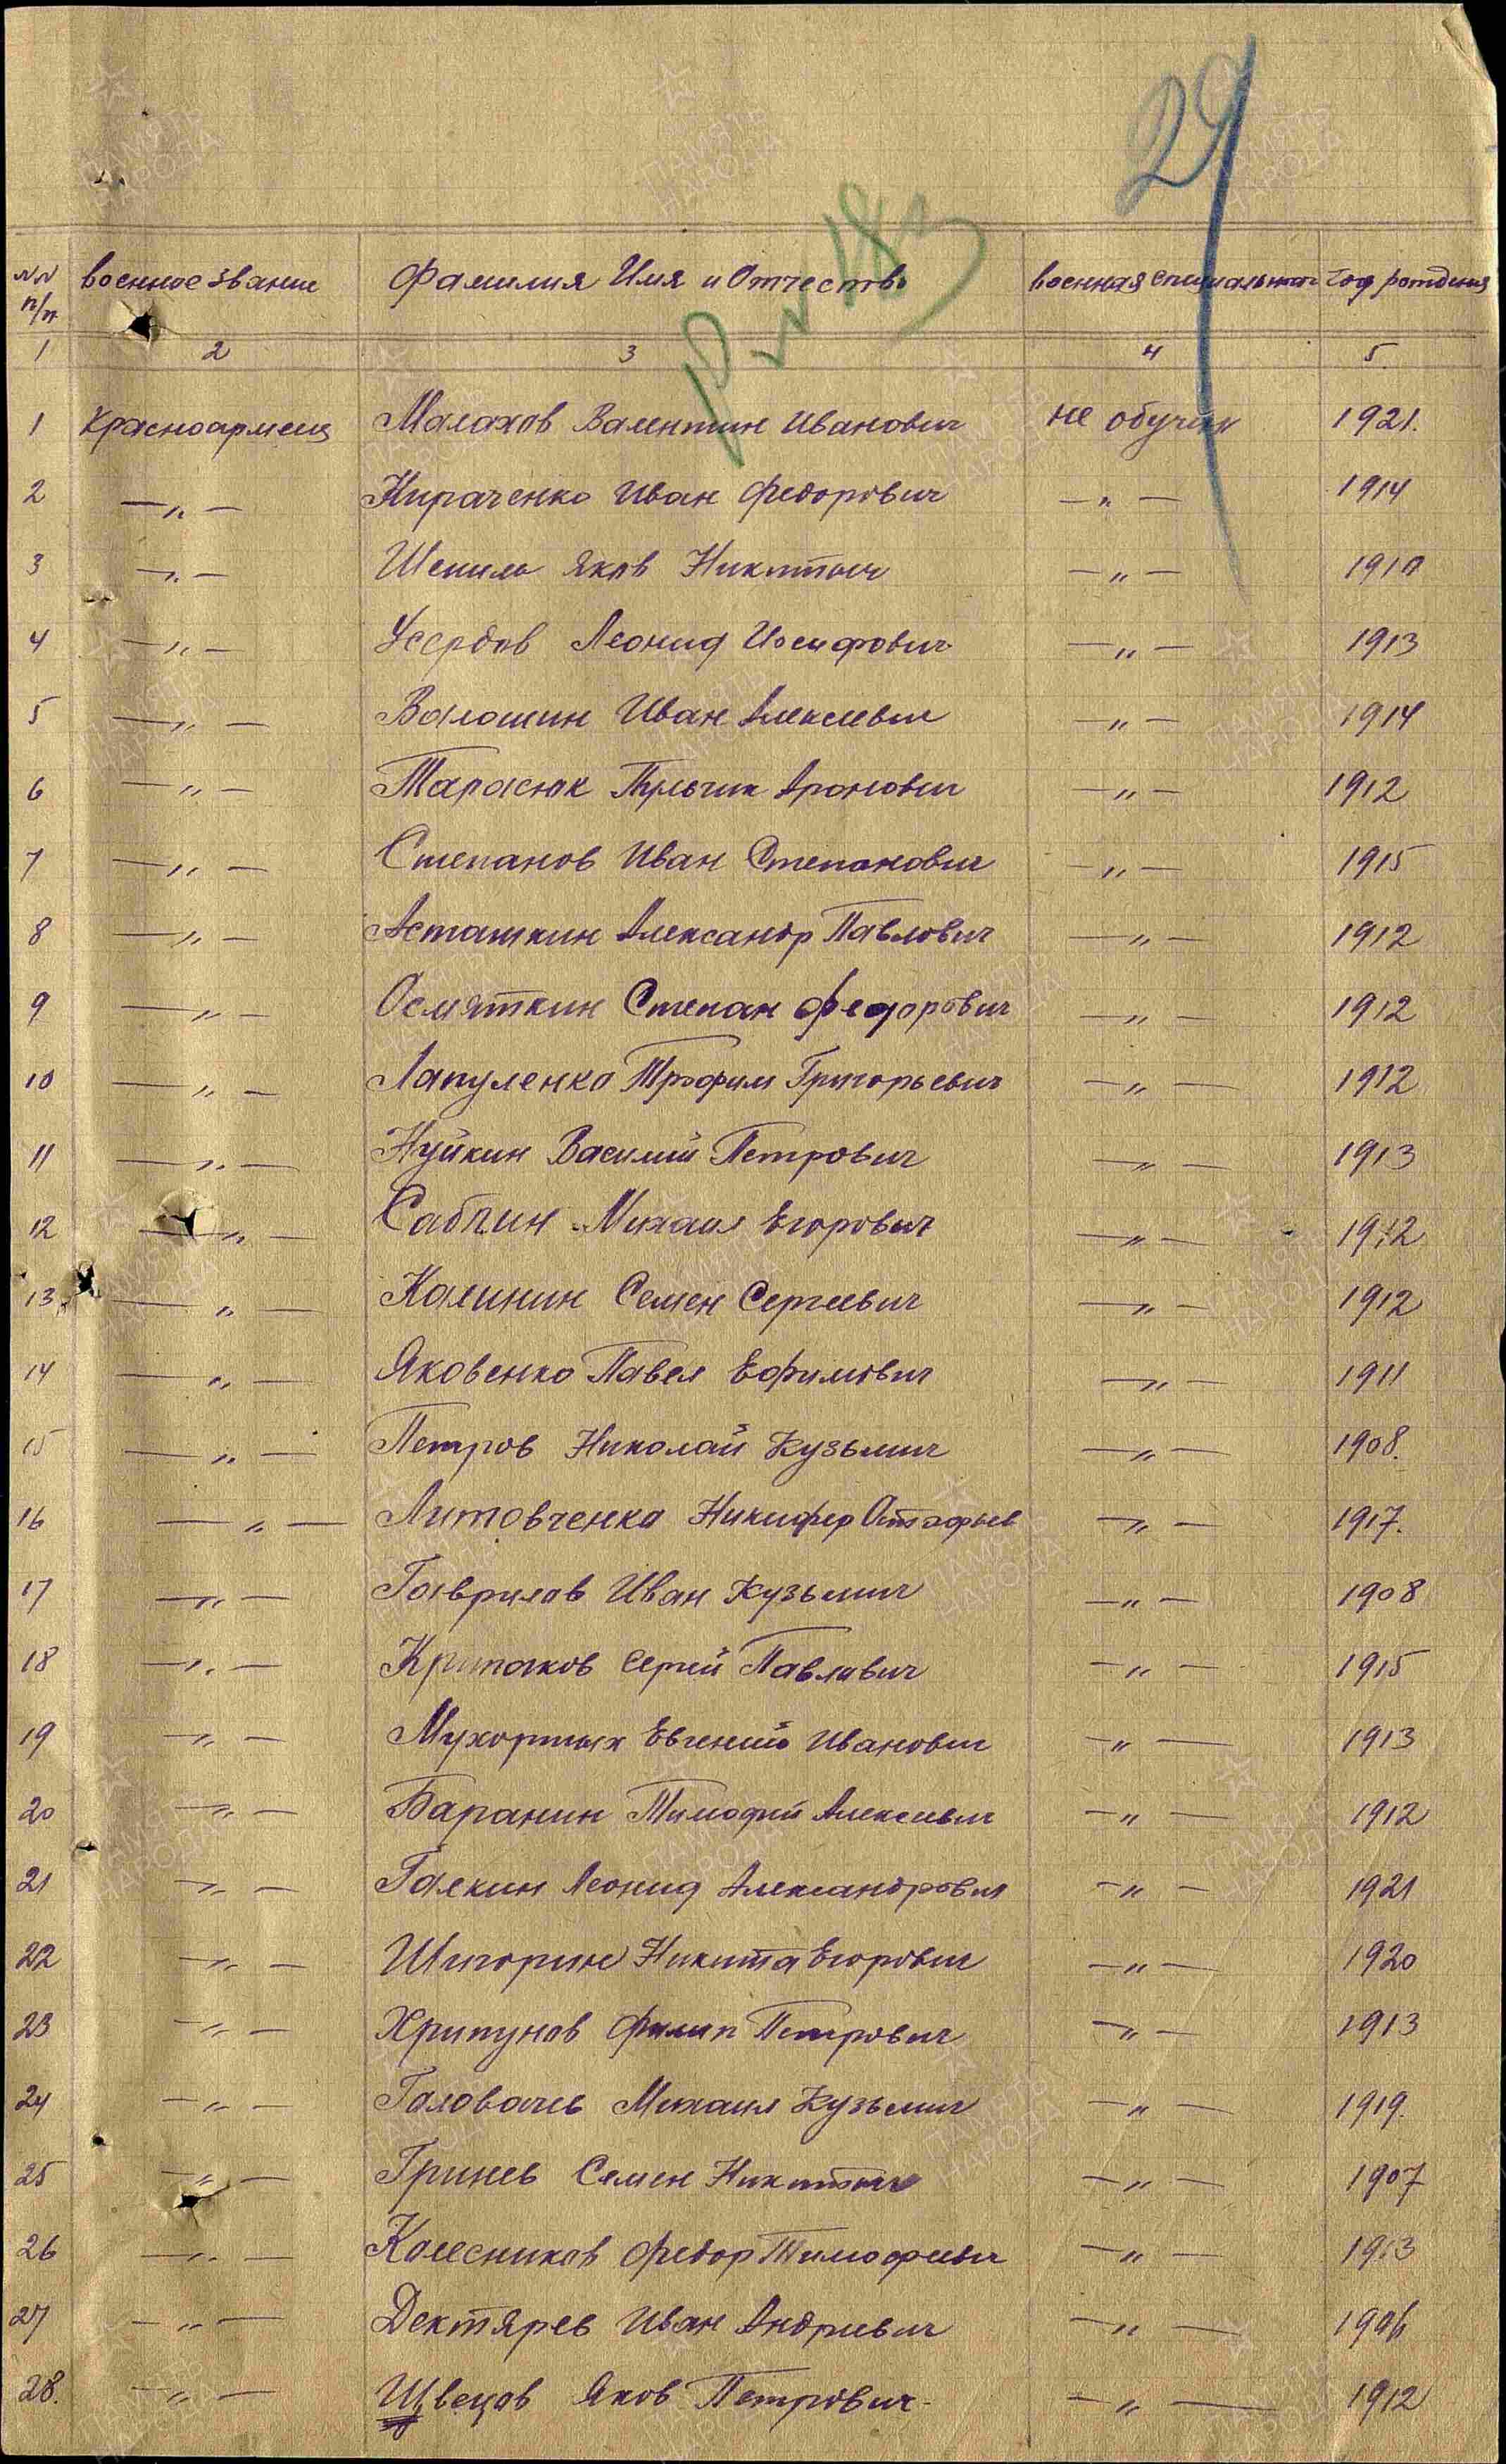 29
NN п/п военное звание Фамилия Имя и Отчество военная специальност год рождения
1 2 3 4 5
1 Красноармеец Малахов Валентин Иванович не обучен 1921.
2 —„— Кираченко Иван Федорович —„— 1914
3 —„— Шепиль Яков Никитич —„— 1910
4 —„— Леонид Иосифович —„— 1913
5 —„— Валошин Иван Алексеевич —„— 1914
6 —„— Тарасюк Аронович —„— 1912
7 —„— Степанов Иван Степанович —„— 1915
8 —„— Асташкин Александр Павлович —„— 1912
9 —„— Осмяткин Степан Федорович —„— 1912
10 —„— Лапуленко Трофим Григорьевич —„— 1912
11 —„— Нуйкин Василий Петрович —„— 1913
12 —„— Саблин Михаил Егорович —„— 1912
13 —„— Калинин Семен Сергеевич —„— 1912
14 —„— Яковенко Павел Ефимович —„— 1911
15 —„— Петров Николай Кузьмич —„— 1908.
16 —„— Литовченко Никифер Остафьев —„— 1917.
17 —„— Гаврилов Иван Кузьмич —„— 1908
18 —„— Крипаков Сергей Павлович —„— 1915
19 —„— Мухортых Евгений Иванович —„— 1913
20 —„— Баранин Тимофей Алексеевич —„— 1912
21 —„— Галкин Леонид Александрович —„— 1921
22 —„— Шигорин Никита Егорович —„— 1920
23 —„— Хрипунов Филип Петрович —„— 1913
24 —„— Головачев Михаил Кузьмич —„— 1919.
25 —„— Гринев Семен Никитич —„— 1907
26 —„— Колесников Федор Тимофеевич —„— 1913
27 —„— Дектярев Иван Андреевич —„—
28. —„— Швецов Яков Петрович —„— 1912